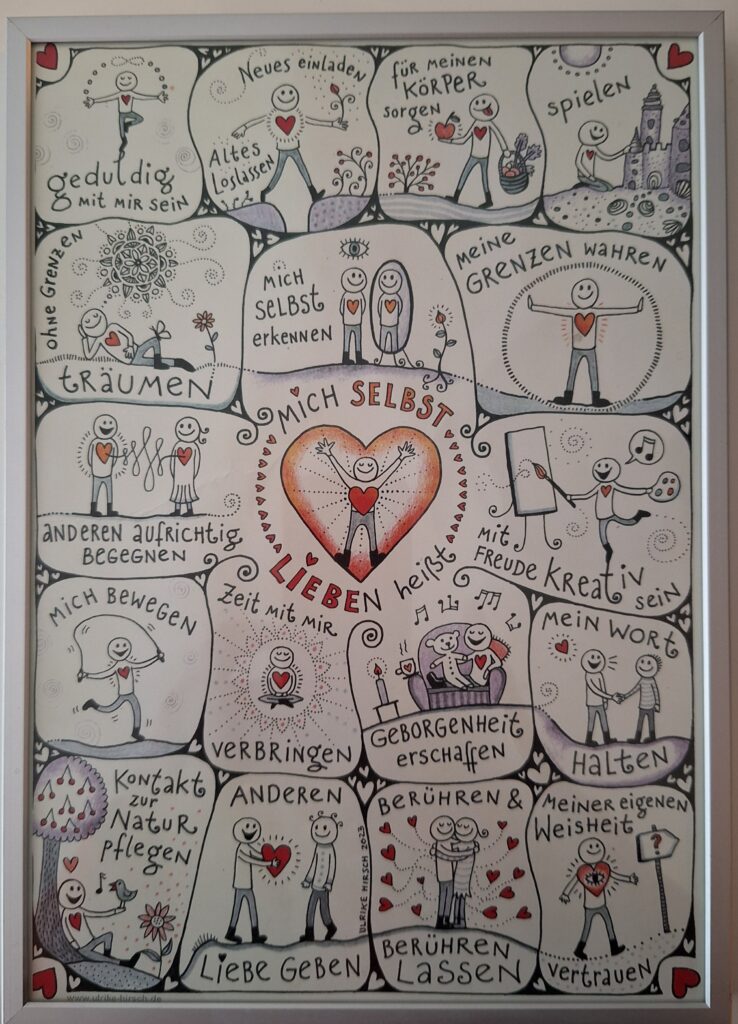 geduldig
mit mir sein
Neues einladen
Altes
Loslassen
für meinen
Körper
sorgen
spielen
ohne Grenzen
träumen
mich
selbst
erkennen
meine
Grenzen wahren
mich selbst
lieben heißt
anderen aufrichtig
begegnen
mit
Freude kreativ
sein
mich bewegen
Zeit mit mir
verbringen
Geborgenheit
erschaffen
mein Wort
halten
Kontakt
zur
Natur
pflegen
Anderen
Liebe geben
Berühren &
Berühren
lassen
Meiner eigenen
Weisheit
?
vertrauen
ULRIKE HIRSCH 2023
www.ulrike-hirsch.de